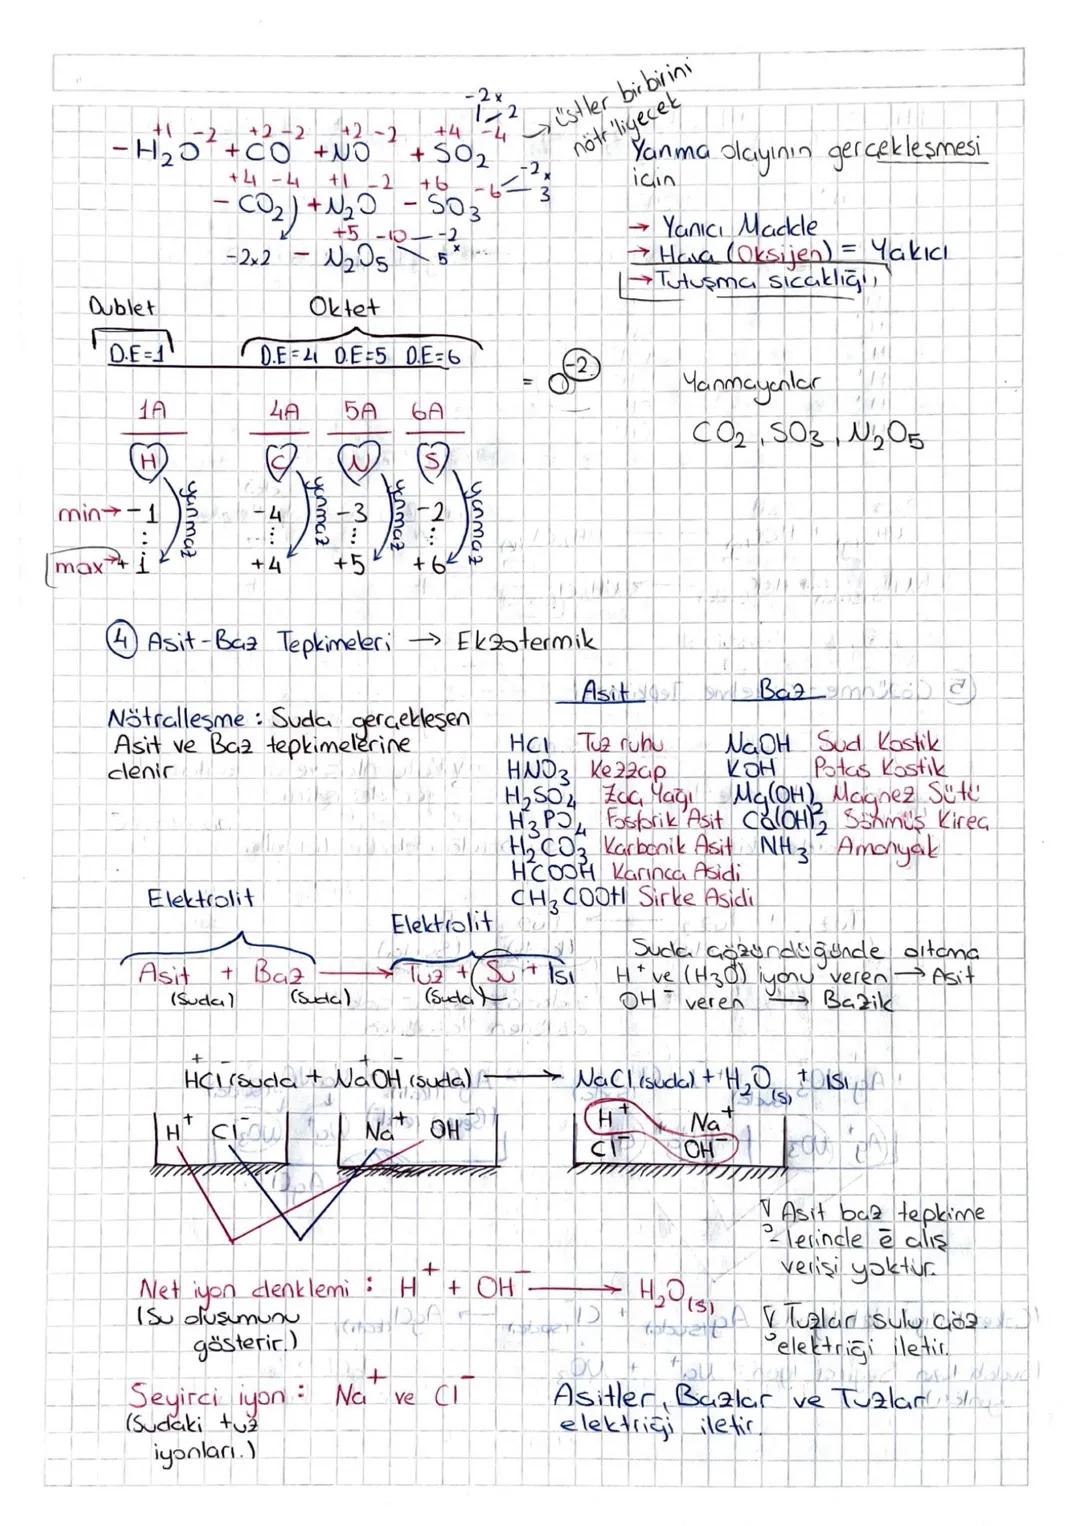 -2x
1 - 2
üstler birbirini
nötr'liyecek
+1 -2 +2 -2 +2 -2 +4 -4
- H₂O + CO + NO + SO₂
+4 -4 +1 -2 +6 -6 -2x
3
- CO₂ + N₂O - SO₃
+5 -10 -2
5x
-2x2 - N₂O₅
Yanma olayının gerçekleşmesi
için
→ Yanıcı Madde
→ Hava (Oksijen) = Yakıcı
→ Tutuşma sıcaklığı
Dublet Oktet
D.E=1 D.E=4 D.E=5 D.E=6
= O⁻²
1A 4A 5A 6A
H C N S
yanmaz yanmaz yanmaz yanmaz
min→ -1 -4 -3 -2
max→ +1 +4 +5 +6
Yanmayanlar
CO₂, SO₃, N₂O₅
④ Asit-Baz Tepkimeleri → Ekzotermik
Nötralleşme : Suda gerçekleşen
Asit ve Baz tepkimelerine
denir
Asit Baz
HCl Tuz ruhu NaOH Sud Kostik
HNO₃ Kezzap KOH Potas Kostik
H₂SO₄ Zaç Yağı Mg(OH)₂ Magnez Sütü
H₃PO₄ Fosforik Asit Ca(OH)₂ Sönmüş Kireç
H₂CO₃ Karbonik Asit NH₃ Amonyak
HCOOH Karınca Asidi
CH₃COOH Sirke Asidi
Elektrolit Elektrolit
Asit + Baz → Tuz + Su + Isı
(Suda) (Suda) (Suda)
Suda çözündüğünde ortama
H⁺ ve (H₃O) iyonu veren → Asit
OH⁻ veren → Bazik
+ - + -
HCl (suda + NaOH (suda) → NaCl (suda) + H₂O(s) + ISI
H⁺ Cl⁻ Na⁺ OH⁻ H⁺ Na⁺
Cl⁻ OH⁻
Asit baz tepkime
- lerinde ē alış
verişi yoktur.
Net iyon denklemi : H⁺ + OH⁻ → H₂O(s)
(Su oluşumunu
gösterir.)
Tuzlar sulu çöz.
elektriği iletir.
Seyirci iyon : Na⁺ ve Cl⁻
(Sudaki tuz
iyonları.)
Asitler, Bazlar ve Tuzlar
elektriği iletir.